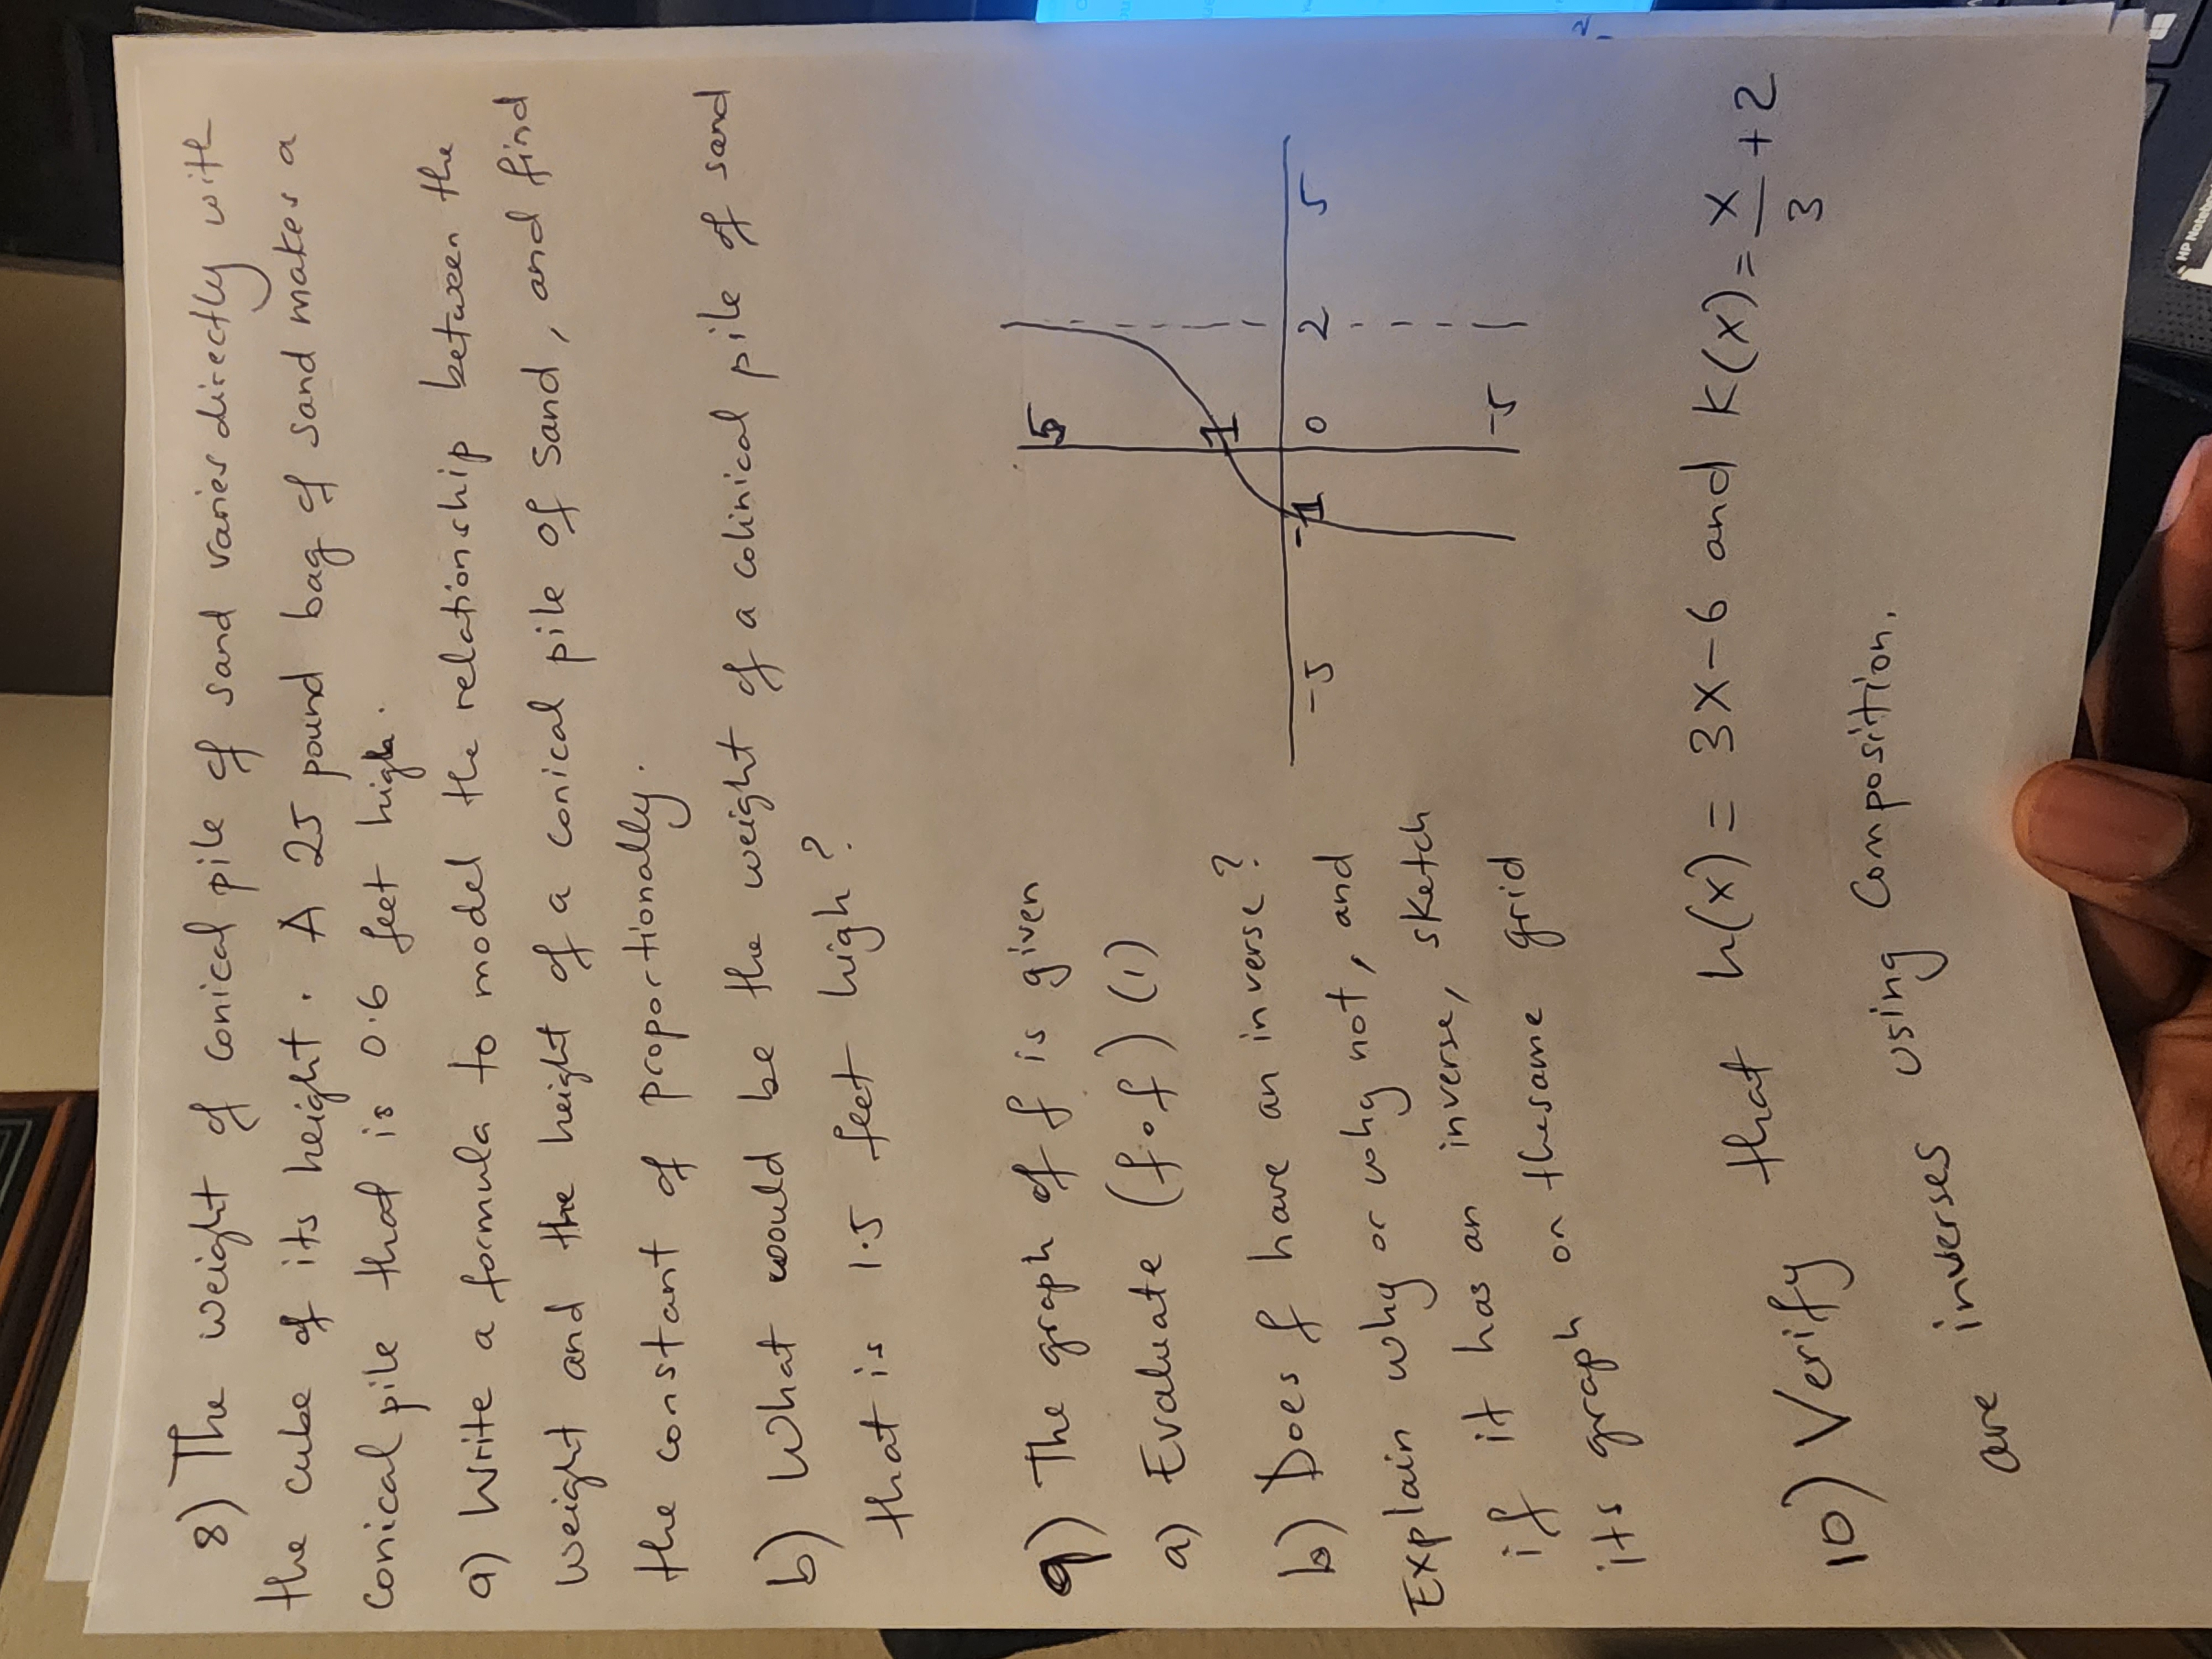 8) The weight of conical pile of sand varies directly with
the cube of its height. A 25 pound bag of sand makes a
conical pile that is 0.6 feet high.
a) Write a formula to model the relationship between the
weight and the height of a conical pile of sand, and find
the constant of proportionally.
b) What would be the weight of a cohinical pile of sand
that is 1.5 feet high?
9) The graph of f is given
a) Evaluate (f∘f)(1)
b) Does f have an inverse?
Explain why or why not, and
if it has an inverse, sketch
its graph on thesame grid
5
1
-5 -1 0 2 5
-5
10) Verify that h(x) = 3x-6 and K(x) = x/3 + 2
are inverses using composition.